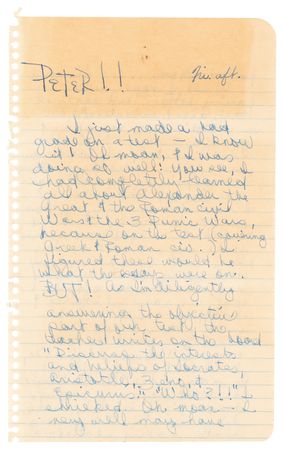 PETER!!
Fri. aft.
I just made a bad
grade on a test — I know
it! Oh moan, & I was
doing so well! You see, I
had completely learned
all about Alexander the
Great & the Roman civil
Wars & the 3 Punic Wars,
because on the test (covering
Greek & Roman civ.) I
figured these would be
what the essays were on.
BUT! As I'm diligently
answering the objective
part of our test, the
teacher writes on the board
"Discuss the interests
and beliefs of Socrates,
Aristotle, Zeno, &
Epicurus." "Who?!!" I
shrieked. Oh moan — I
very well may have